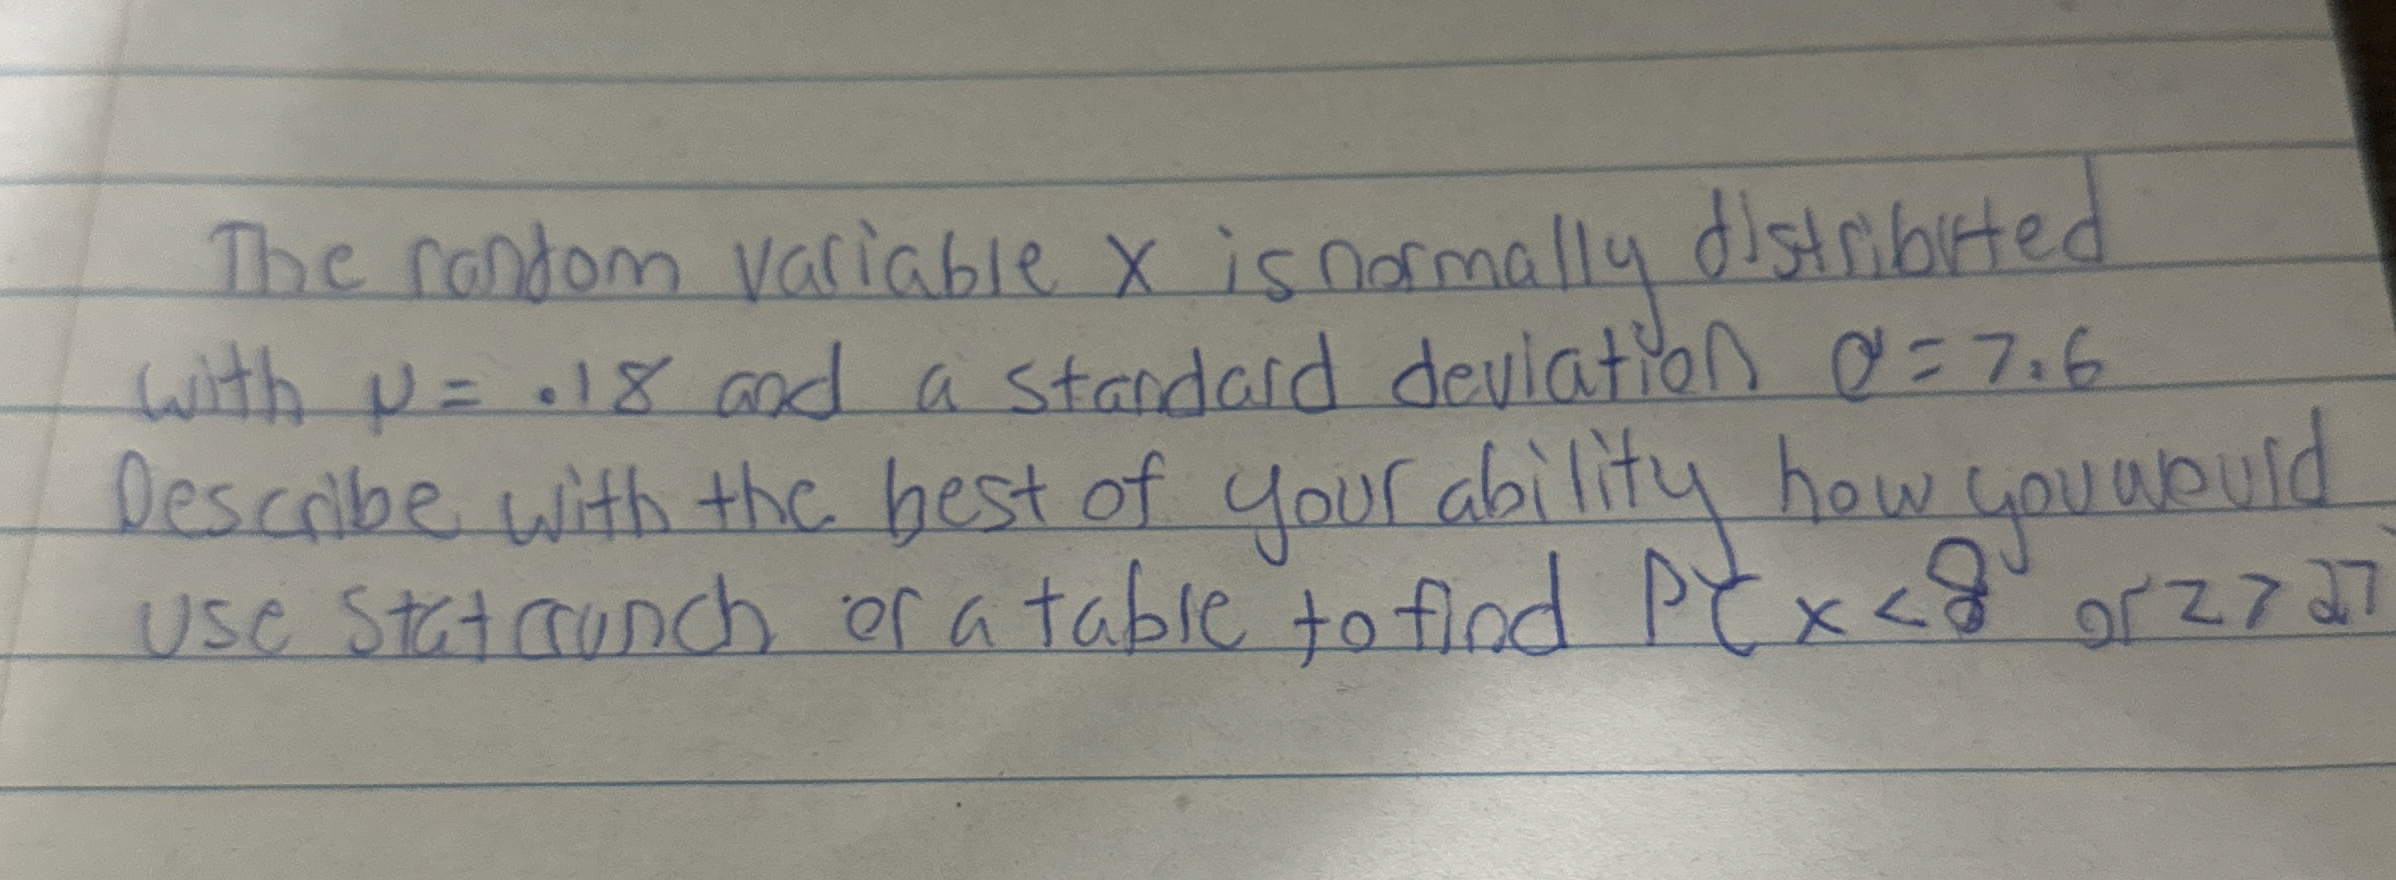 The random variable x is normally distributed
with μ = .18 and a standard deviation σ = 7.6
Describe with the best of your ability how you would
use Statcrunch or a table to find P( x < 8 or z > 27